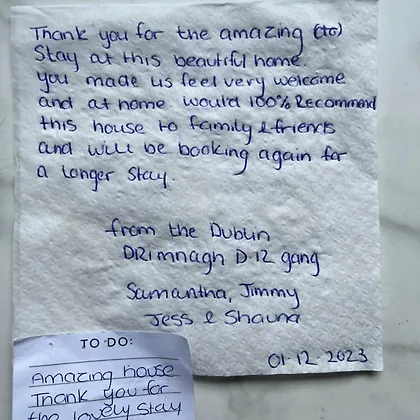 Thank you for the amazing (to)
Stay at this beautiful home.
you made us feel very welcome
and at home would 100% Recommend
this house to family & friends
and will be booking again for
a longer stay.
from the Dublin
DRimnagh D.12 gang
Samantha, Jimmy
Jess & Shauna
01.12.2023
TO DO:
Amazing house
Thank you for
the lovely stay